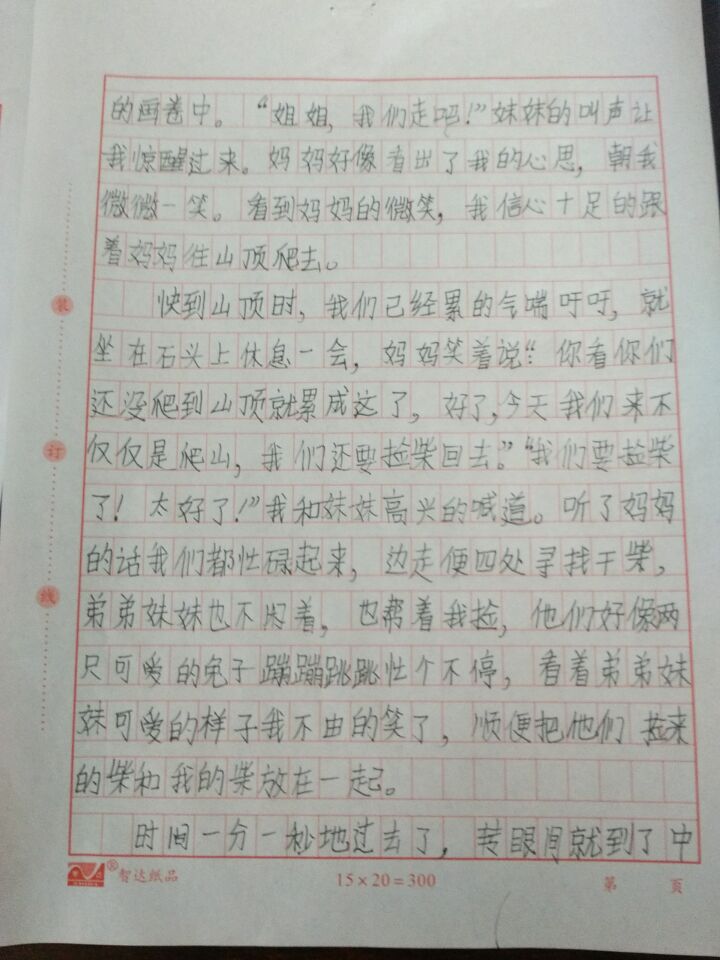 的画卷中。“姐姐,我们走吧!”妹妹的叫声让
我惊醒过来。妈妈好像看出了我的心思,朝我
微微一笑。看到妈妈的微笑,我信心十足的跟
着妈妈往山顶爬去。
快到山顶时,我们已经累的气喘吁吁,就
坐在石头上休息一会,妈妈笑着说:“你看你们
还没爬到山顶就累成这了,好了,今天我们来不
仅仅是爬山,我们还要捡柴回去。”“我们要捡柴
了!太好了!”我和妹妹高兴的喊道。听了妈妈
的话我们都忙碌起来,边走便四处寻找干柴,
弟弟妹妹也不闲着,也帮着我捡,他们好像两
只可爱的兔子蹦蹦跳跳忙个不停,看着弟弟妹
妹可爱的样子我不由的笑了,顺便把他们捡来
的柴和我的柴放在一起。
时间一分一秒地过去了,转眼间就到了中
装
订
线
智达纸品
15×20=300
第 页